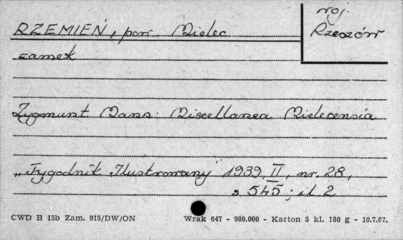 woj.
RZEMIEŃ, pow. Mielec
Rzeszów
zamek
Zygmunt Mans: Miscellanea Mielecensia
"Tygodnik Ilustrowany" 1939, II, nr. 28,
s 545; il. 2
CWD B 15b Zam. 915/DW/ON
Wrak 647 - 980.000 - Karton 5 kl. 180 g - 10.7.67.